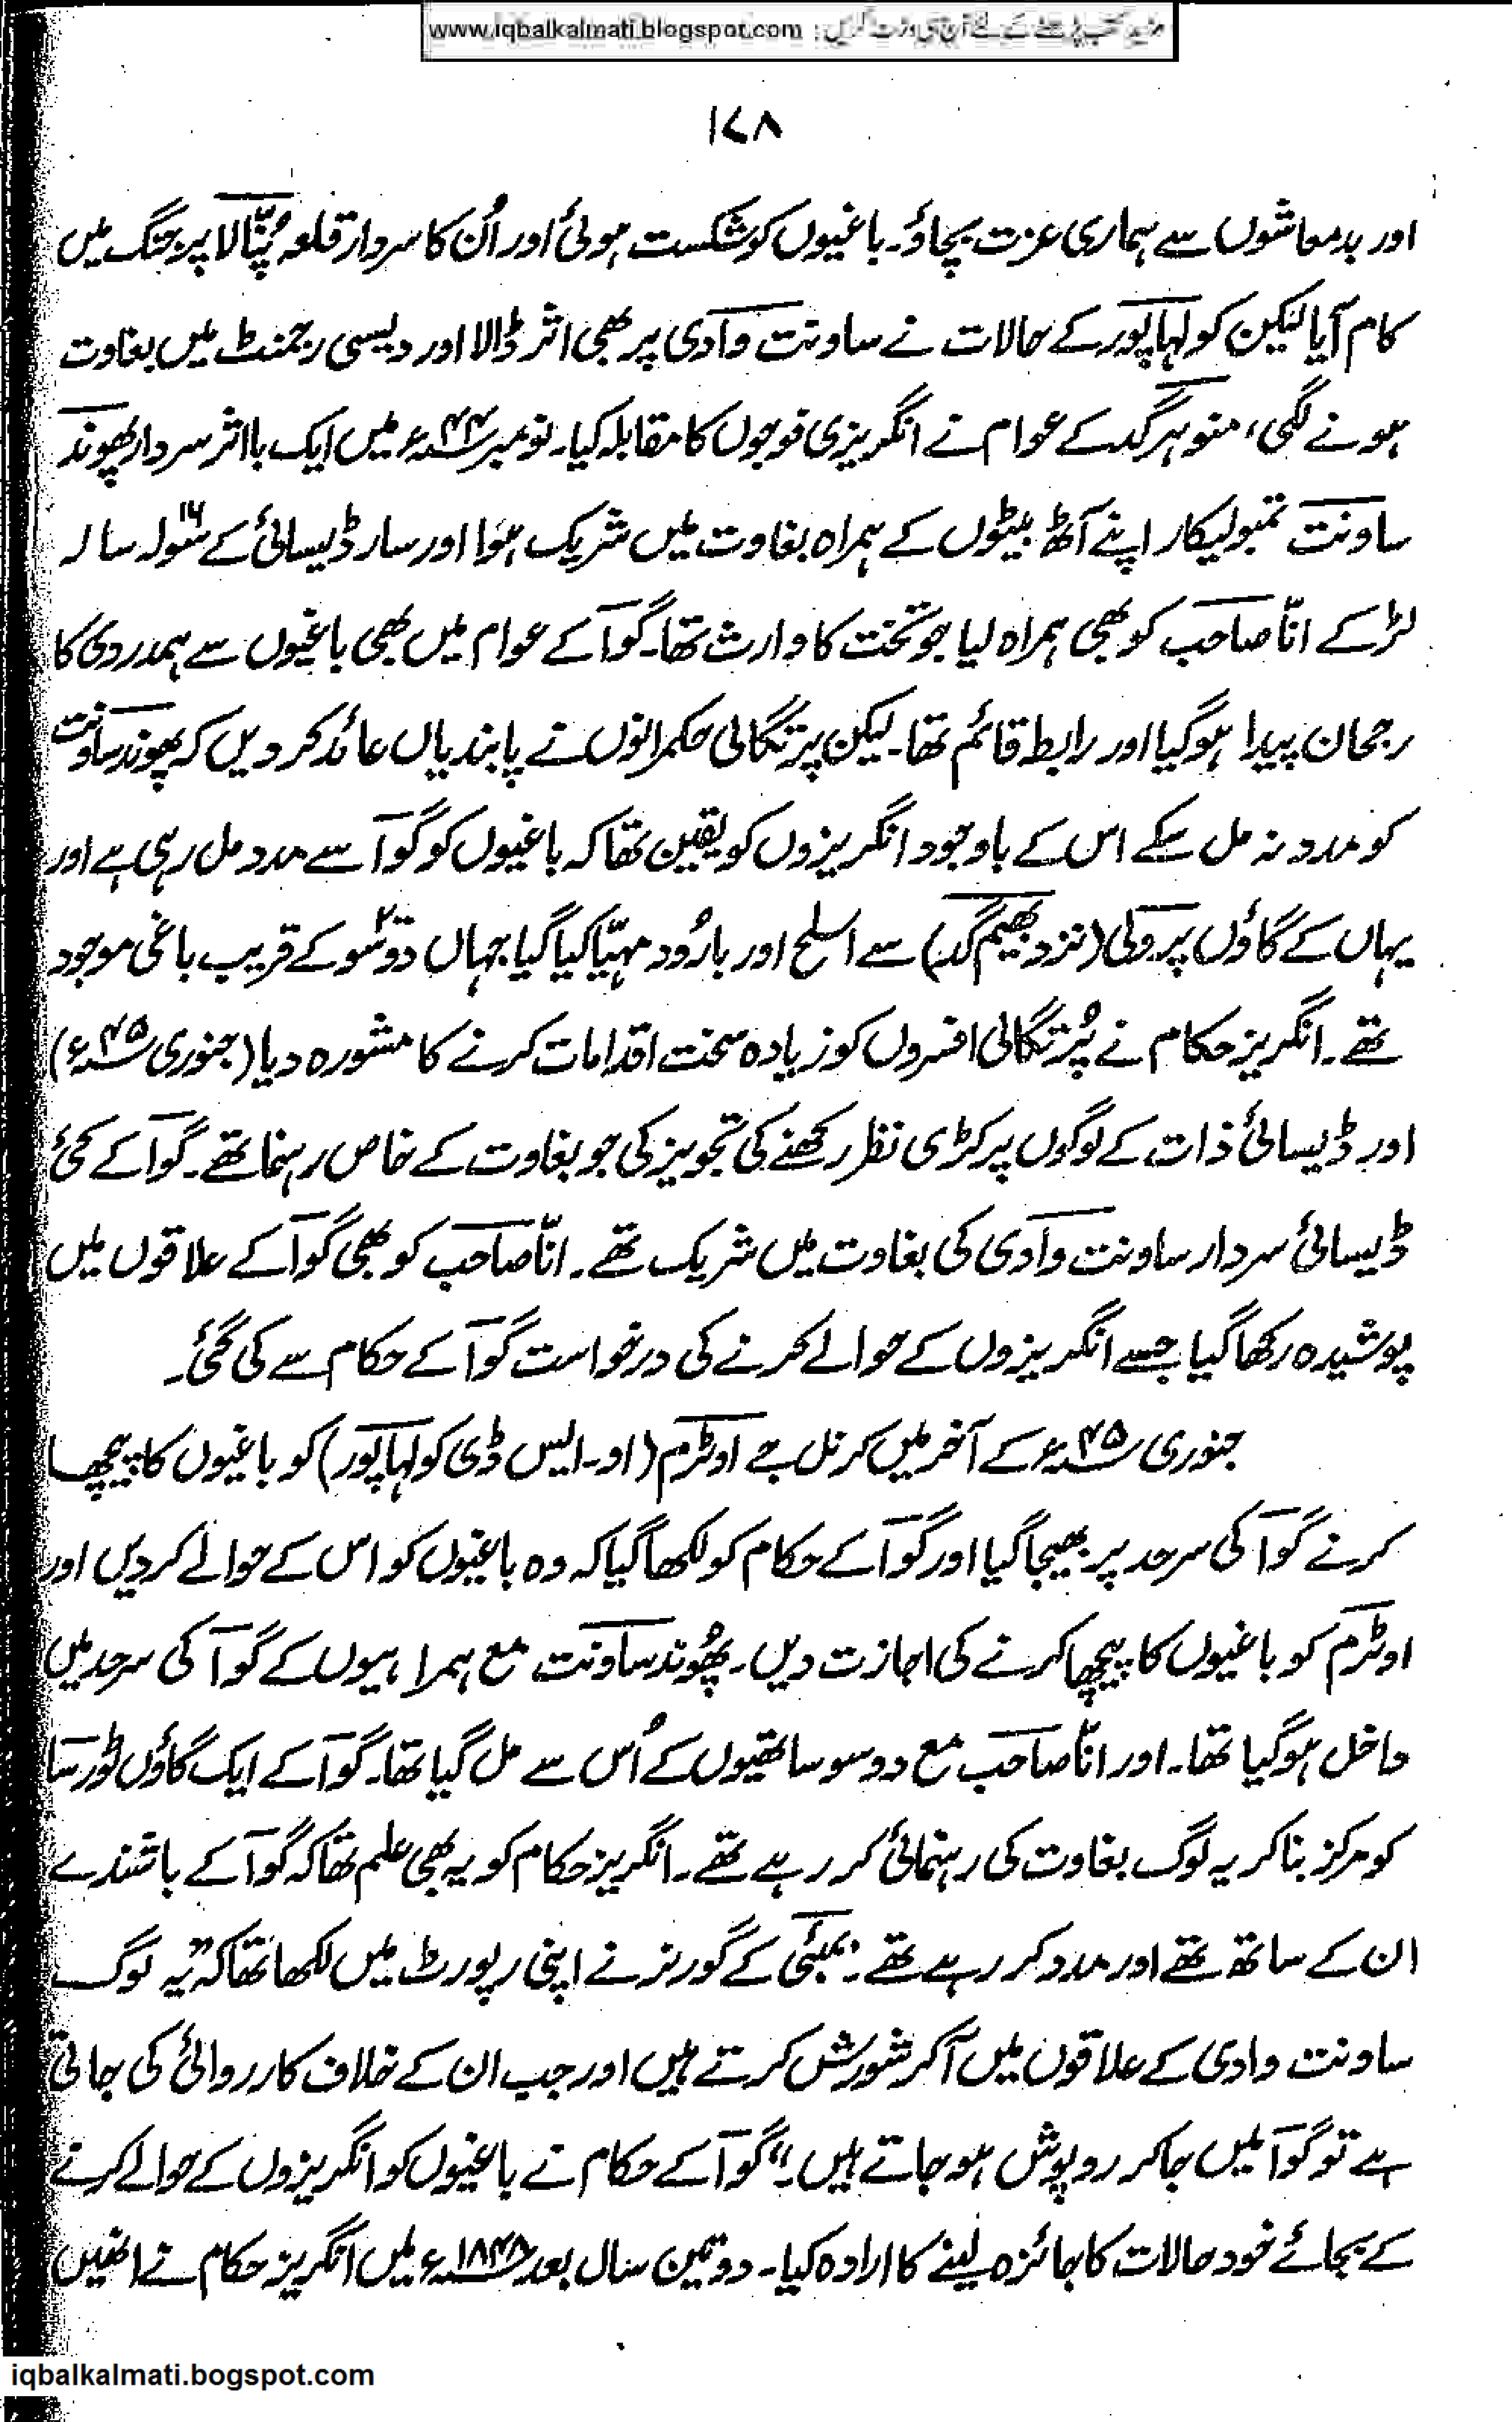 مزید کتب پڑھنے کے لئے آج ہی وزٹ کریں : www.iqbalkalmati.blogspot.com
۱۷۸
اور بدمعاشوں سے ہماری عزت بچاؤ۔ باغیوں کو شکست ہوئی اور اُن کا سردار قلعہ پُنّالا پر جنگ میں
کام آیا لیکن کولہاپور کے حالات نے ساونت وادی پر بھی اثر ڈالا اور دیسی رجمنٹ میں بغاوت
ہونے لگی، منوہر گڈ کے عوام نے انگریزی فوجوں کا مقابلہ کیا۔ نومبر ۴۴ء میں ایک بااثر سردار پھوند
ساونت تمبولیکار اپنے آٹھ بیٹوں کے ہمراہ بغاوت میں شریک ہوا اور سار ڈیسائی کے سولہ ۱۶ سالہ
لڑکے انّا صاحب کو بھی ہمراہ لیا جو تخت کا وارث تھا۔ گوآ کے عوام میں بھی باغیوں سے ہمدردی کا
رجحان پیدا ہوگیا اور رابطہ قائم تھا۔ لیکن پرتگالی حکمرانوں نے پابندیاں عائد کر دیں کہ پھوند ساونت
کو مدد نہ مل سکے اس کے باوجود انگریزوں کو یقین تھا کہ باغیوں کو گوآ سے مدد مل رہی ہے اور
یہاں کے گاؤں پرولی (نزد بھیم گڈ) سے اسلحہ اور بارُود مہیّا کیا گیا جہاں دو سو ۲۰۰ کے قریب باغی موجود
تھے۔ انگریز حکام نے پُرتگالی افسروں کو زیادہ سخت اقدامات کرنے کا مشورہ دیا (جنوری ۴۵ء)
اور ڈیسائی ذات کے لوگوں پر کڑی نظر رکھنے کی تجویز کی جو بغاوت کے خاص رہنما تھے۔ گوآ کے کئی
ڈیسائی سردار ساونت وادی کی بغاوت میں شریک تھے۔ انّا صاحب کو بھی گوآ کے علاقوں میں
پوشیدہ رکھا گیا جسے انگریزوں کے حوالے کرنے کی درخواست گوآ کے حکام سے کی گئی۔
جنوری ۴۵ء کے آخر میں کرنل جے اوٹرم (او۔ ایس ڈی کولہاپور) کو باغیوں کا پیچھا
کرنے گوآ کی سرحد پر بھیجا گیا اور گوآ کے حکام کو لکھا گیا کہ وہ باغیوں کو اس کے حوالے کر دیں اور
اوٹرم کو باغیوں کا پیچھا کرنے کی اجازت دیں۔ پھُوند ساونت مع ہمراہیوں کے گوآ کی سرحد میں
داخل ہوگیا تھا۔ اور انّا صاحب مع دو سو ساتھیوں کے اُس سے مل گیا تھا۔ گوآ کے ایک گاؤں ٹورسا
کو مرکز بنا کر یہ لوگ بغاوت کی رہنمائی کر رہے تھے۔ انگریز حکام کو یہ بھی علم تھا کہ گوآ کے باشندے
ان کے ساتھ تھے اور مدد کر رہے تھے۔ بمبئی کے گورنر نے اپنی رپورٹ میں لکھا تھا کہ ”یہ لوگ
ساونت وادی کے علاقوں میں آکر شورش کرتے ہیں اور جب ان کے خلاف کارروائی کی جاتی
ہے تو گوآ میں جا کر روپوش ہو جاتے ہیں۔“ گوآ کے حکام نے باغیوں کو انگریزوں کے حوالے کرنے
کے بجائے خود حالات کا جائزہ لینے کا ارادہ کیا۔ دو تین سال بعد ۱۸۴۸ء میں انگریز حکام نے انھیں
iqbalkalmati.bogspot.com